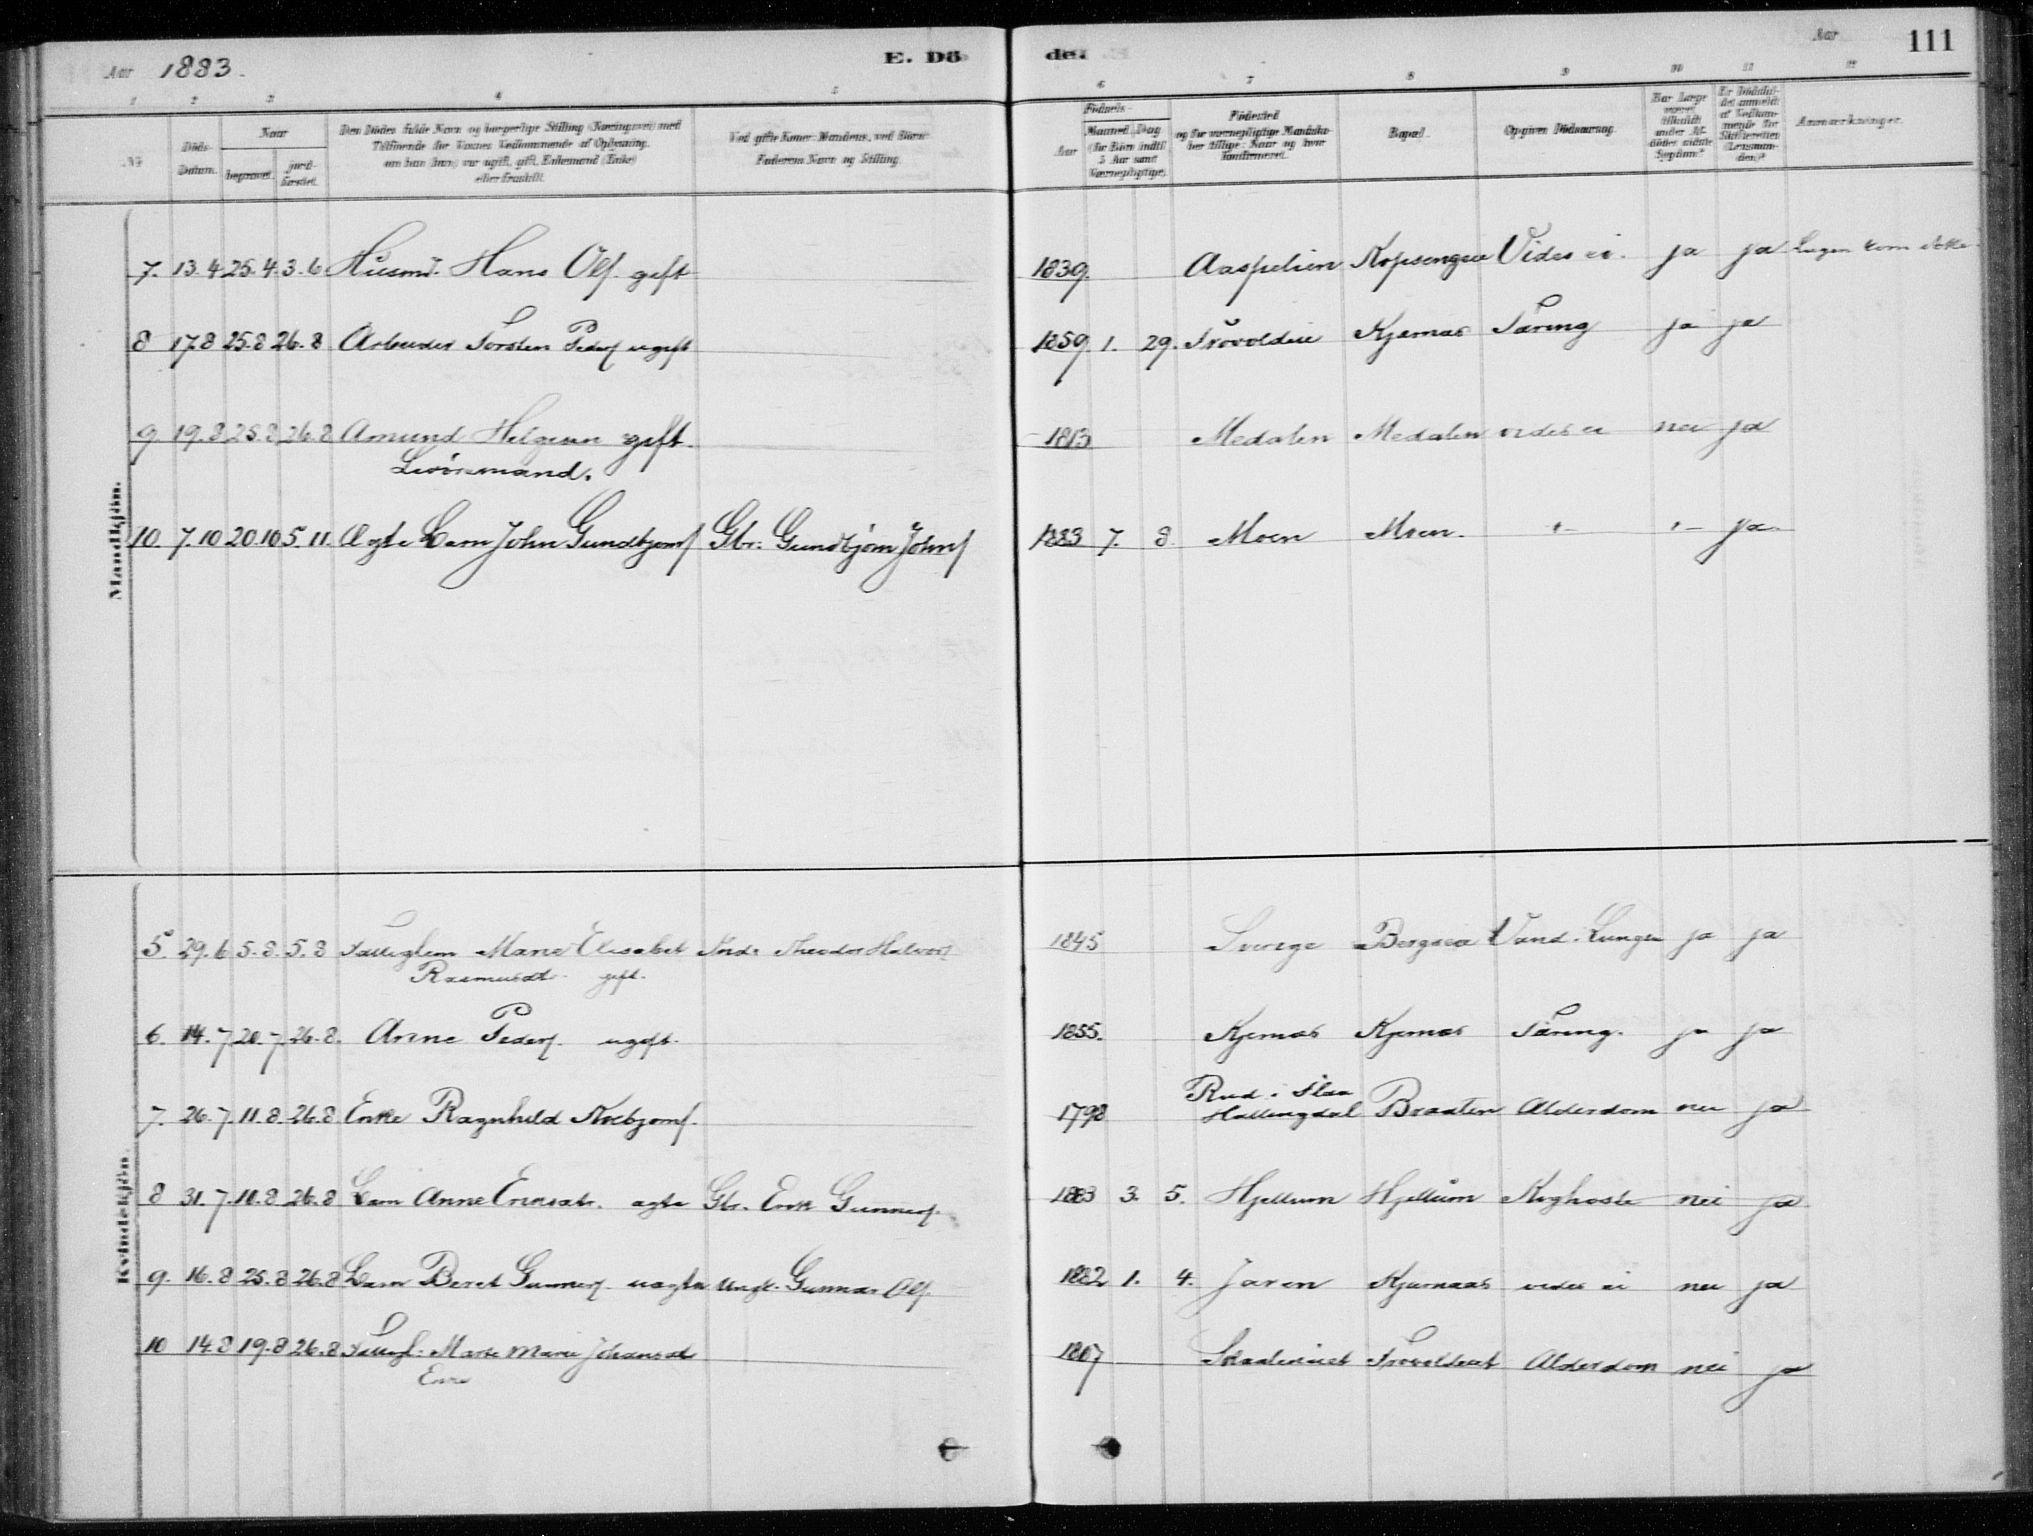 Aar 1883.
E. Dö
de.
Aar
111
1 2 3 4 5
6 7 8 9 10 11 12
№
Döds-Datum.
Naar
begravet.
jord-fæstet.
Den Dödes fulde Navn og borgerlige Stilling (Næringsvei) med
Tilföiende for Voxnes Vedkommende af Oplysning,
om han (hun) var ugift, gift, Enkemand (Enke)
eller fraskilt.
Ved gifte Koner: Mandens, ved Börn:
Faderens Navn og Stilling.
Födsels-
Aar
Maaned Dag
(for Börn indtil
5 Aar samt
Værnepligtige).
Födested
og for værnepligtige Mandskaber tillige: Naar og hvor
konfirmeret.
Bopæl.
Opgiven Dödsaarsag.
Har Læge
været
tilkaldt
under Af-
dödes sidste
Sygdom?
Er Dödsfal-
det anmeldt
af Vedkom-
mende for
Skifteretten
(Lensman-
den)?
Anmærkninger.
Mandkjön.
7. 13.4 25.4 3.6 Husmd. Hans Ols. gift 1839. Aaspelien Kopsengen Vides ei. ja ja Lægen kom ikke
8 17.8 25.8 26.8 Arbeider Torsten Peders. ugift 1859. 1. 29. Trovoldeie Kjernas Tæring ja ja
9. 19.8 25.8 26.8 Amund Helgesen gift. 1813 Medalen Medalen vides ei nei ja
Livöresmand.
10. 7.10 20.10 5.11. Ægte Barn John Gundbjørns. Gbr. Gundbjørn Johns. 1883 7. 8. Moen Moen. "- "- ja.
Kvindekjön.
5. 29.6 5.8. 5.8 Fattiglem Marie Elisabet Inds. Theodor Halvors. 1845 Sverige Bergsea Vand. Lungen ja ja
Rasmusdt. gift.
6. 14.7 20.7 26.8. Anne Peders. ugift. 1855. Kjernas Kjernas Tæring. ja ja
7. 26.7 11.8. 26.8 Enke Ragnhild Asbjørns. 1798 Rud i Flaa
Hallingdal Braaten Alderdom nei ja
8 31.7. 10.8. 26.8 Barn Anne Eriksdtr. ægte Gbr. Erik Gunners. 1883 3. 5. Hjellum Hjellum Kighoste nei ja
9. 16.8 25.8 26.8 Barn Beret Gunners. uægte Ungk. Gunnar Ols. 1882 1. 4. Jaren Kjærnaas vides ei nei ja
10 14.8 19.8 26.8 Fattigl. Marte Marie Johansdt 1807 Trovoldeiet Alderdom nei ja
Enke